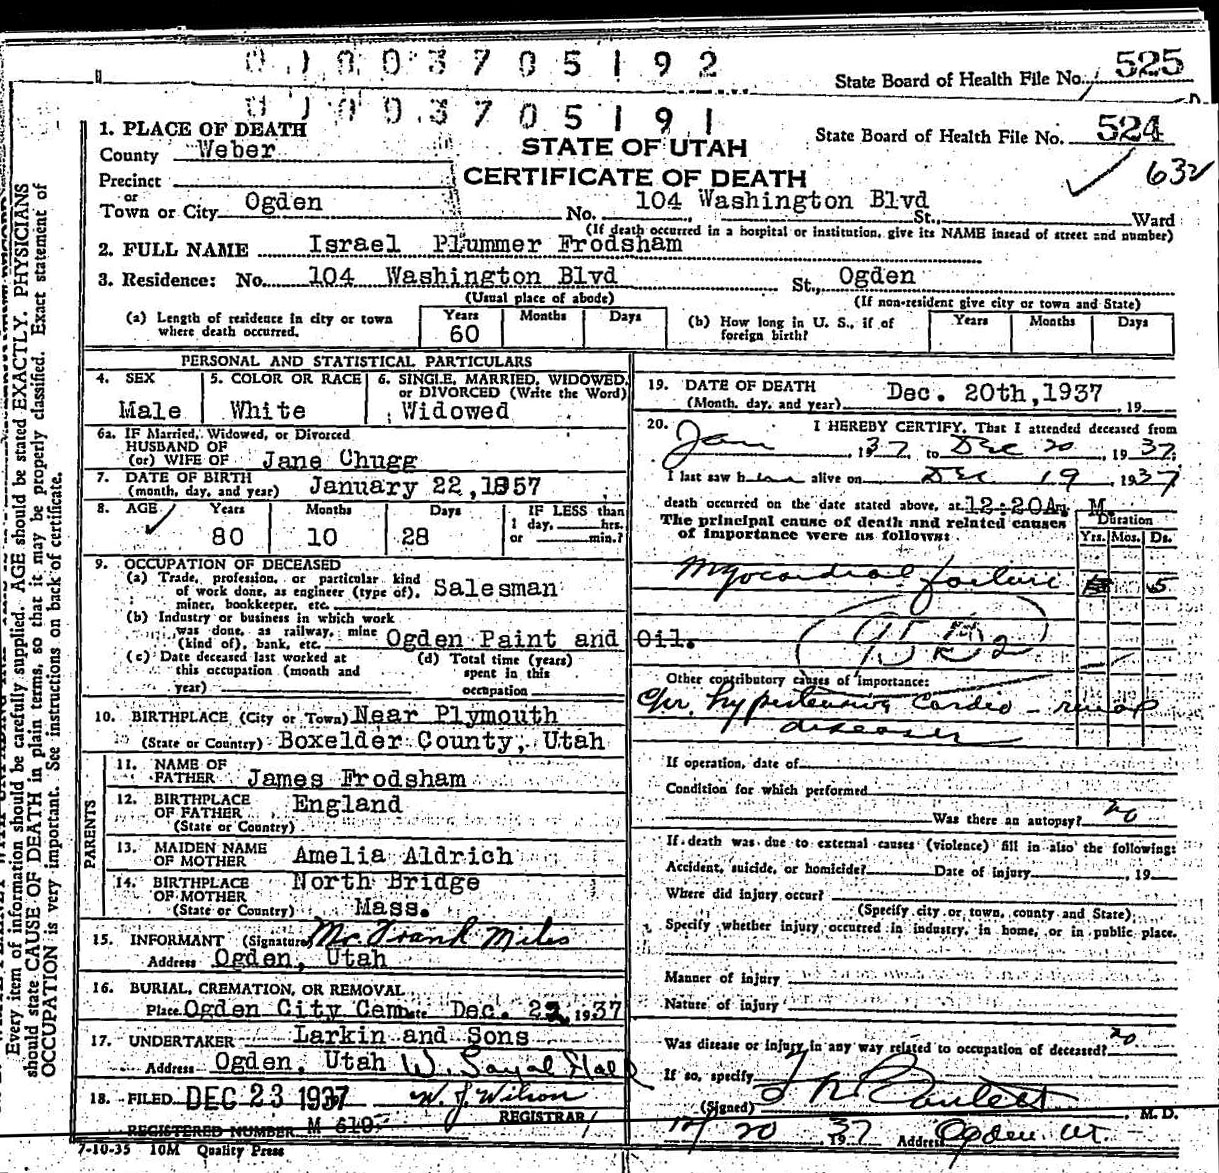 0 1 0 0 3 7 0 5 1 9 2
State Board of Health File No. 525
0 1 0 0 3 7 0 5 1 9 1
1. PLACE OF DEATH
County Weber
STATE OF UTAH
State Board of Health File No. 524
Precinct
CERTIFICATE OF DEATH
632
or
Town or City Ogden No. 104 Washington Blvd St., Ward
(If death occurred in a hospital or institution, give its NAME insead of street and number)
2. FULL NAME Israel Plummer Frodsham
3. Residence: No. 104 Washington Blvd St., Ogden
(Usual place of abode) (If non-resident give city or town and State)
(a) Length of residence in city or town where death occurred. Years 60 Months Days
(b) How long in U. S., if of foreign birth? Years Months Days
PERSONAL AND STATISTICAL PARTICULARS
4. SEX 5. COLOR OR RACE 6. SINGLE, MARRIED, WIDOWED, or DIVORCED (Write the Word)
Male White Widowed
6a. IF Married, Widowed, or Divorced
HUSBAND OF
(or) WIFE OF Jane Chugg
7. DATE OF BIRTH
(month, day, and year) January 22, 1857
8. AGE Years Months Days IF LESS than
1 day, hrs.
80 10 28 or min.?
9. OCCUPATION OF DECEASED
(a) Trade, profession, or particular kind
of work done, as engineer (type of), Salesman
miner, bookkeeper, etc.
(b) Industry or business in which work
was done, as railway, mine
(kind of), bank, etc. Ogden Paint and Oil.
(c) Date deceased last worked at (d) Total time (years)
this occupation (month and spent in this
year) occupation
10. BIRTHPLACE (City or Town) Near Plymouth
(State or Country) Boxelder County, Utah
PARENTS
11. NAME OF
FATHER James Frodsham
12. BIRTHPLACE
OF FATHER England
(State or Country)
13. MAIDEN NAME
OF MOTHER Amelia Aldrich
14. BIRTHPLACE North Bridge
OF MOTHER
(State or Country) Mass.
15. INFORMANT (Signature) Mc. Frank Miles
Address Ogden, Utah
16. BURIAL, CREMATION, OR REMOVAL
Place Ogden City Cem Date Dec. 22, 1937
17. UNDERTAKER Larkin and Sons
Address Ogden, Utah
18. FILED DEC 23 1937 W. J. Wilson
REGISTRAR
REGISTERED NUMBER M 610
7-10-35 10M Quality Press
19. DATE OF DEATH
(Month, day, and year) Dec. 20th, 1937 19
20. I HEREBY CERTIFY, That I attended deceased from
Jan 1937 to Dec 20, 1937
I last saw him alive on Dec 19 1937
death occurred on the date stated above, at 12:20A. M.
The principal cause of death and related causes
of importance were as follows:
Duration
Yrs. Mos. Ds.
Myocardial failure 5
Other contributory causes of importance:
Chr. hypertensive cardio - renal
disease
If operation, date of
Condition for which performed
Was there an autopsy? no
If death was due to external causes (violence) fill in also the following:
Accident, suicide, or homicide? Date of injury , 19
Where did injury occur?
(Specify city or town, county and State)
Specify whether injury occurred in industry, in home, or in public place.
Manner of injury
Nature of injury
Was disease or injury in any way related to occupation of deceased? no
If so, specify
(Signed) M. D.
12/20 1937 Address Ogden Ut.
Every item of information should be carefully supplied. AGE should be stated EXACTLY. PHYSICIANS
should state CAUSE OF DEATH in plain terms, so that it may be properly classified. Exact statement of
OCCUPATION is very important. See instructions on back of certificate.